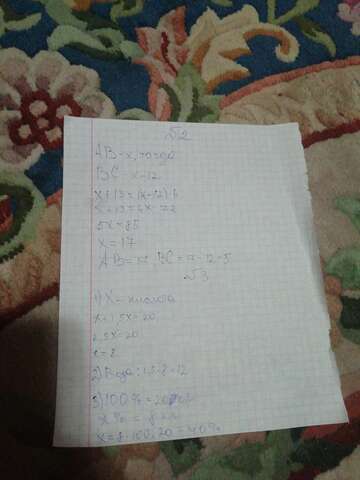 №2
AB - x, тогда
BC - x-12
x+13=(x-12)·6
x+13=6x-72
5x=85
x=17
AB=17, BC=17-12=5
№3
1) X - кислота
x+1,5x=20
2,5x=20
x=8
2) Вода: 1,5·8=12
3) 100% = 20
x% = 8
x=8·100:20=40%